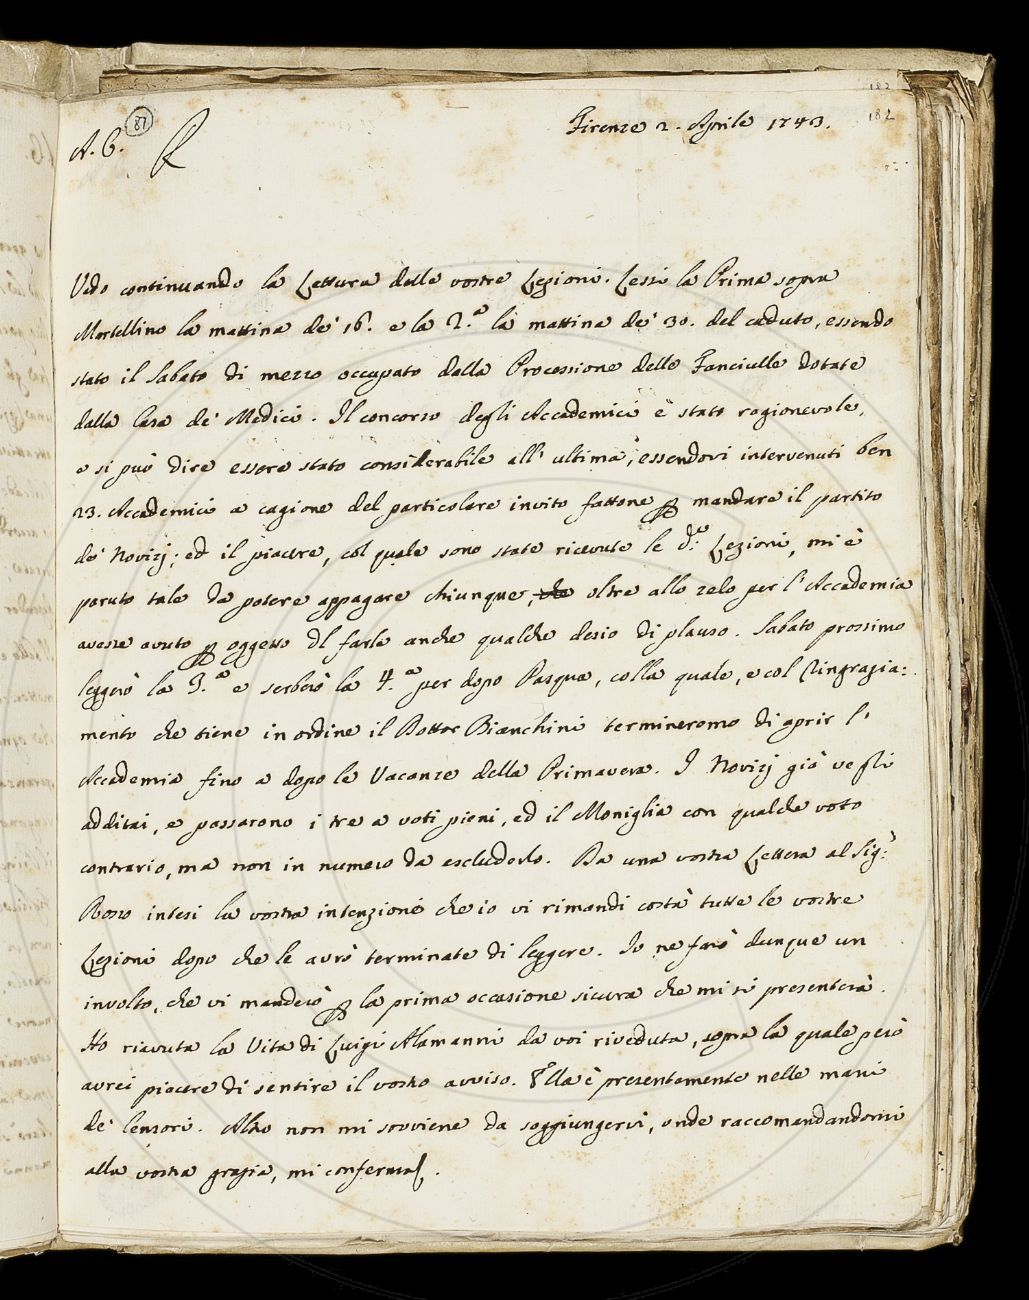 182
A. C. 87 R Firenze 2. Aprile 1743. 182
Vado continuando la Lettura delle vostre Lezioni. Lessi la Prima sopra
Martellino la mattina de' 16. e la 2.ª la mattina de' 30. del caduto, essendo
stato il Sabato di mezzo occupato dalla Processione delle Fanciulle dotate
dalla Casa de' Medici. Il concorso degli Accademici è stato ragionevole,
e si può dire essere stato considerabile all' ultima, essendovi intervenuti ben
23. Accademici a cagione del particolare invito fattone ꝑ mandare il partito
de' Novizj; ed il piacere, col quale sono state ricevute le d.e Lezioni, mi è
paruto tale da potere appagare chiunque, oltre allo zelo per l' Accademia
avesse avuto ꝑ oggetto di farle anche qualche desio di plauso. Sabato prossimo
leggerò la 3.ª e serberò la 4.ª per dopo Pasqua, colla quale, e col Ringrazia:
mento che tiene in ordine il Dottor Bianchini termineremo di aprir l'
Accademia fino a dopo le Vacanze della Primavera. I Novizj già ve gli
additai, e passarono i tre a voti pieni, ed il Moniglia con qualche voto
contrario, ma non in numero da escluderlo. Da una vostra Lettera al Sig:
Rosso intesi la vostra intenzione che io vi rimandi costà tutte le vostre
Lezioni dopo che le avrò terminate di leggere. Io ne farò dunque un
involto, che vi manderò ꝑ la prima occasione sicura che mi si presenterà.
Ho riavuta la Vita di Luigi Alamanni da voi riveduta, sopra la quale però
avrei piacere di sentire il vostro avviso. Ella è presentemente nelle mani
de' Censori. Altro non mi sovviene da soggiungervi, onde raccomandandomi
alla vostra grazia, mi confermo.